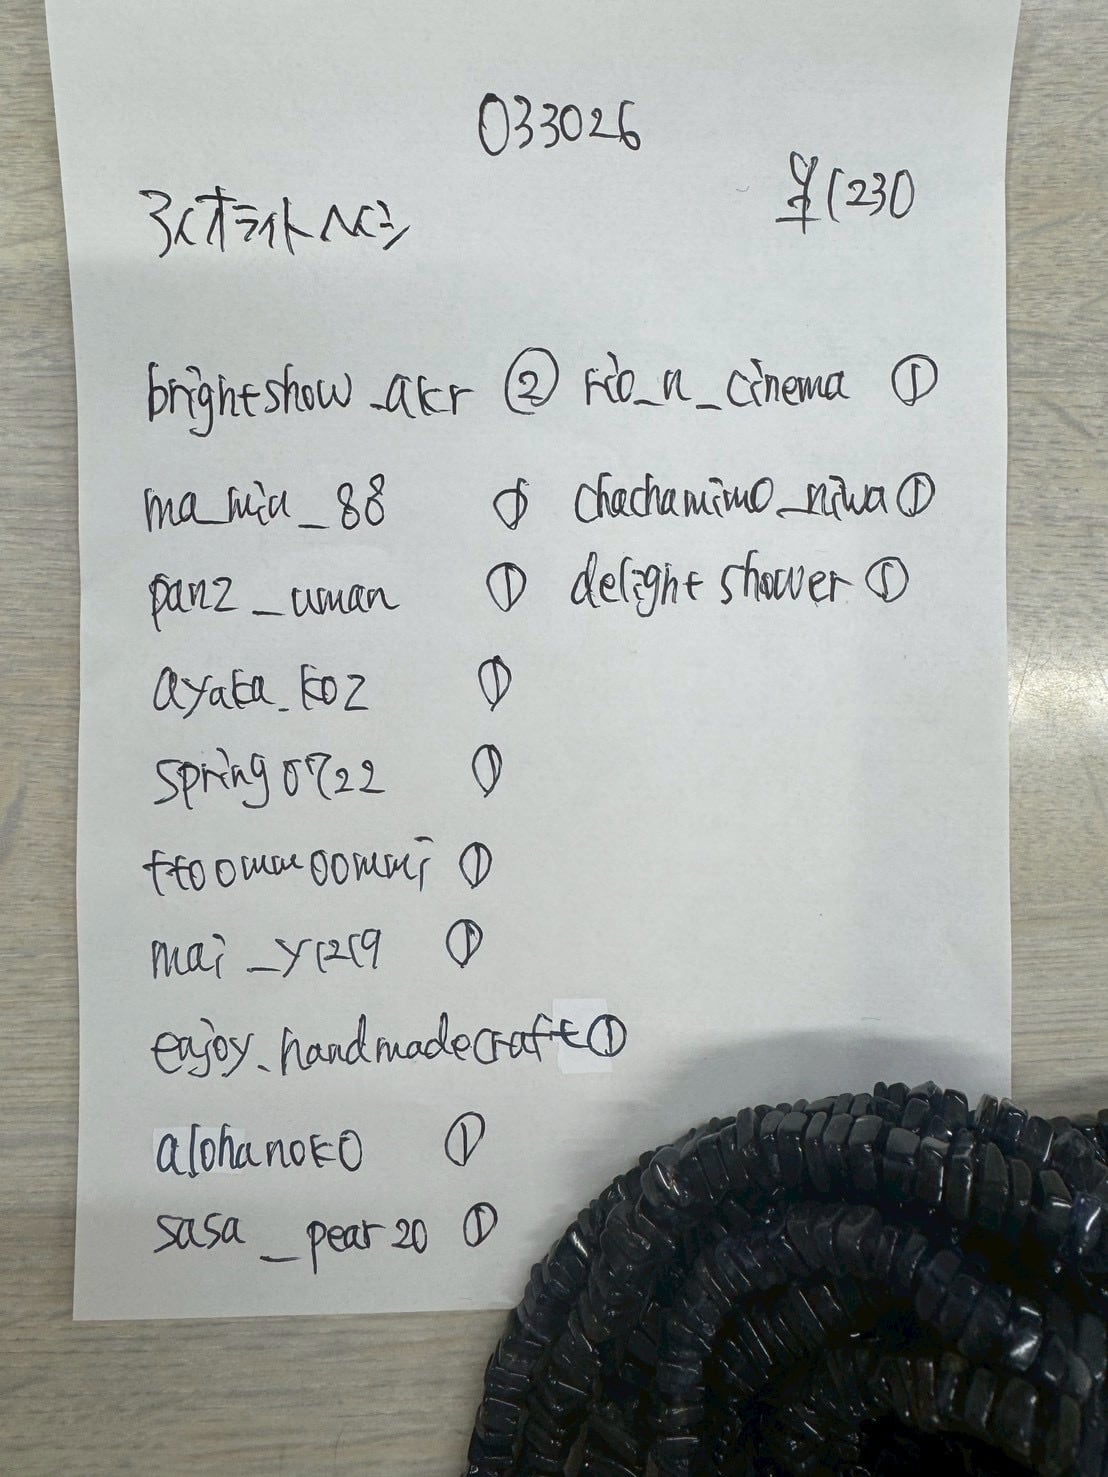 033026
アイオライトヘイシ
¥1230
brightshow_akr ② rio_n_cinema ①
ma_miu_88 ① chachamimo_niwa ①
panz_uman ① delightshower ①
ayaka_koz ①
spring0722 ①
ttoommoommi ①
mai_y1219 ①
enjoy.handmadecraft ①
alohanoko ①
sasa_pear20 ①